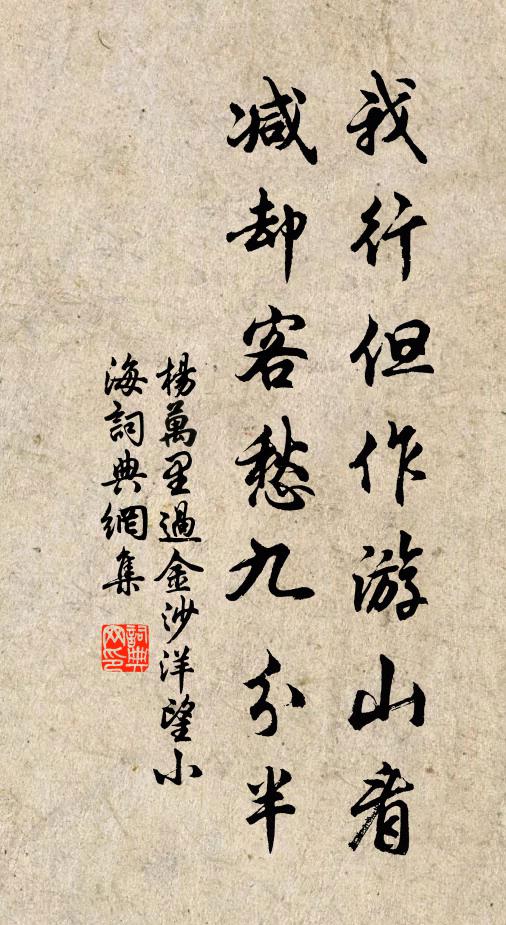 我行但作游山看
减却客愁九分半
楊萬里過金沙洋望小
海詞典網集
詞典
网印